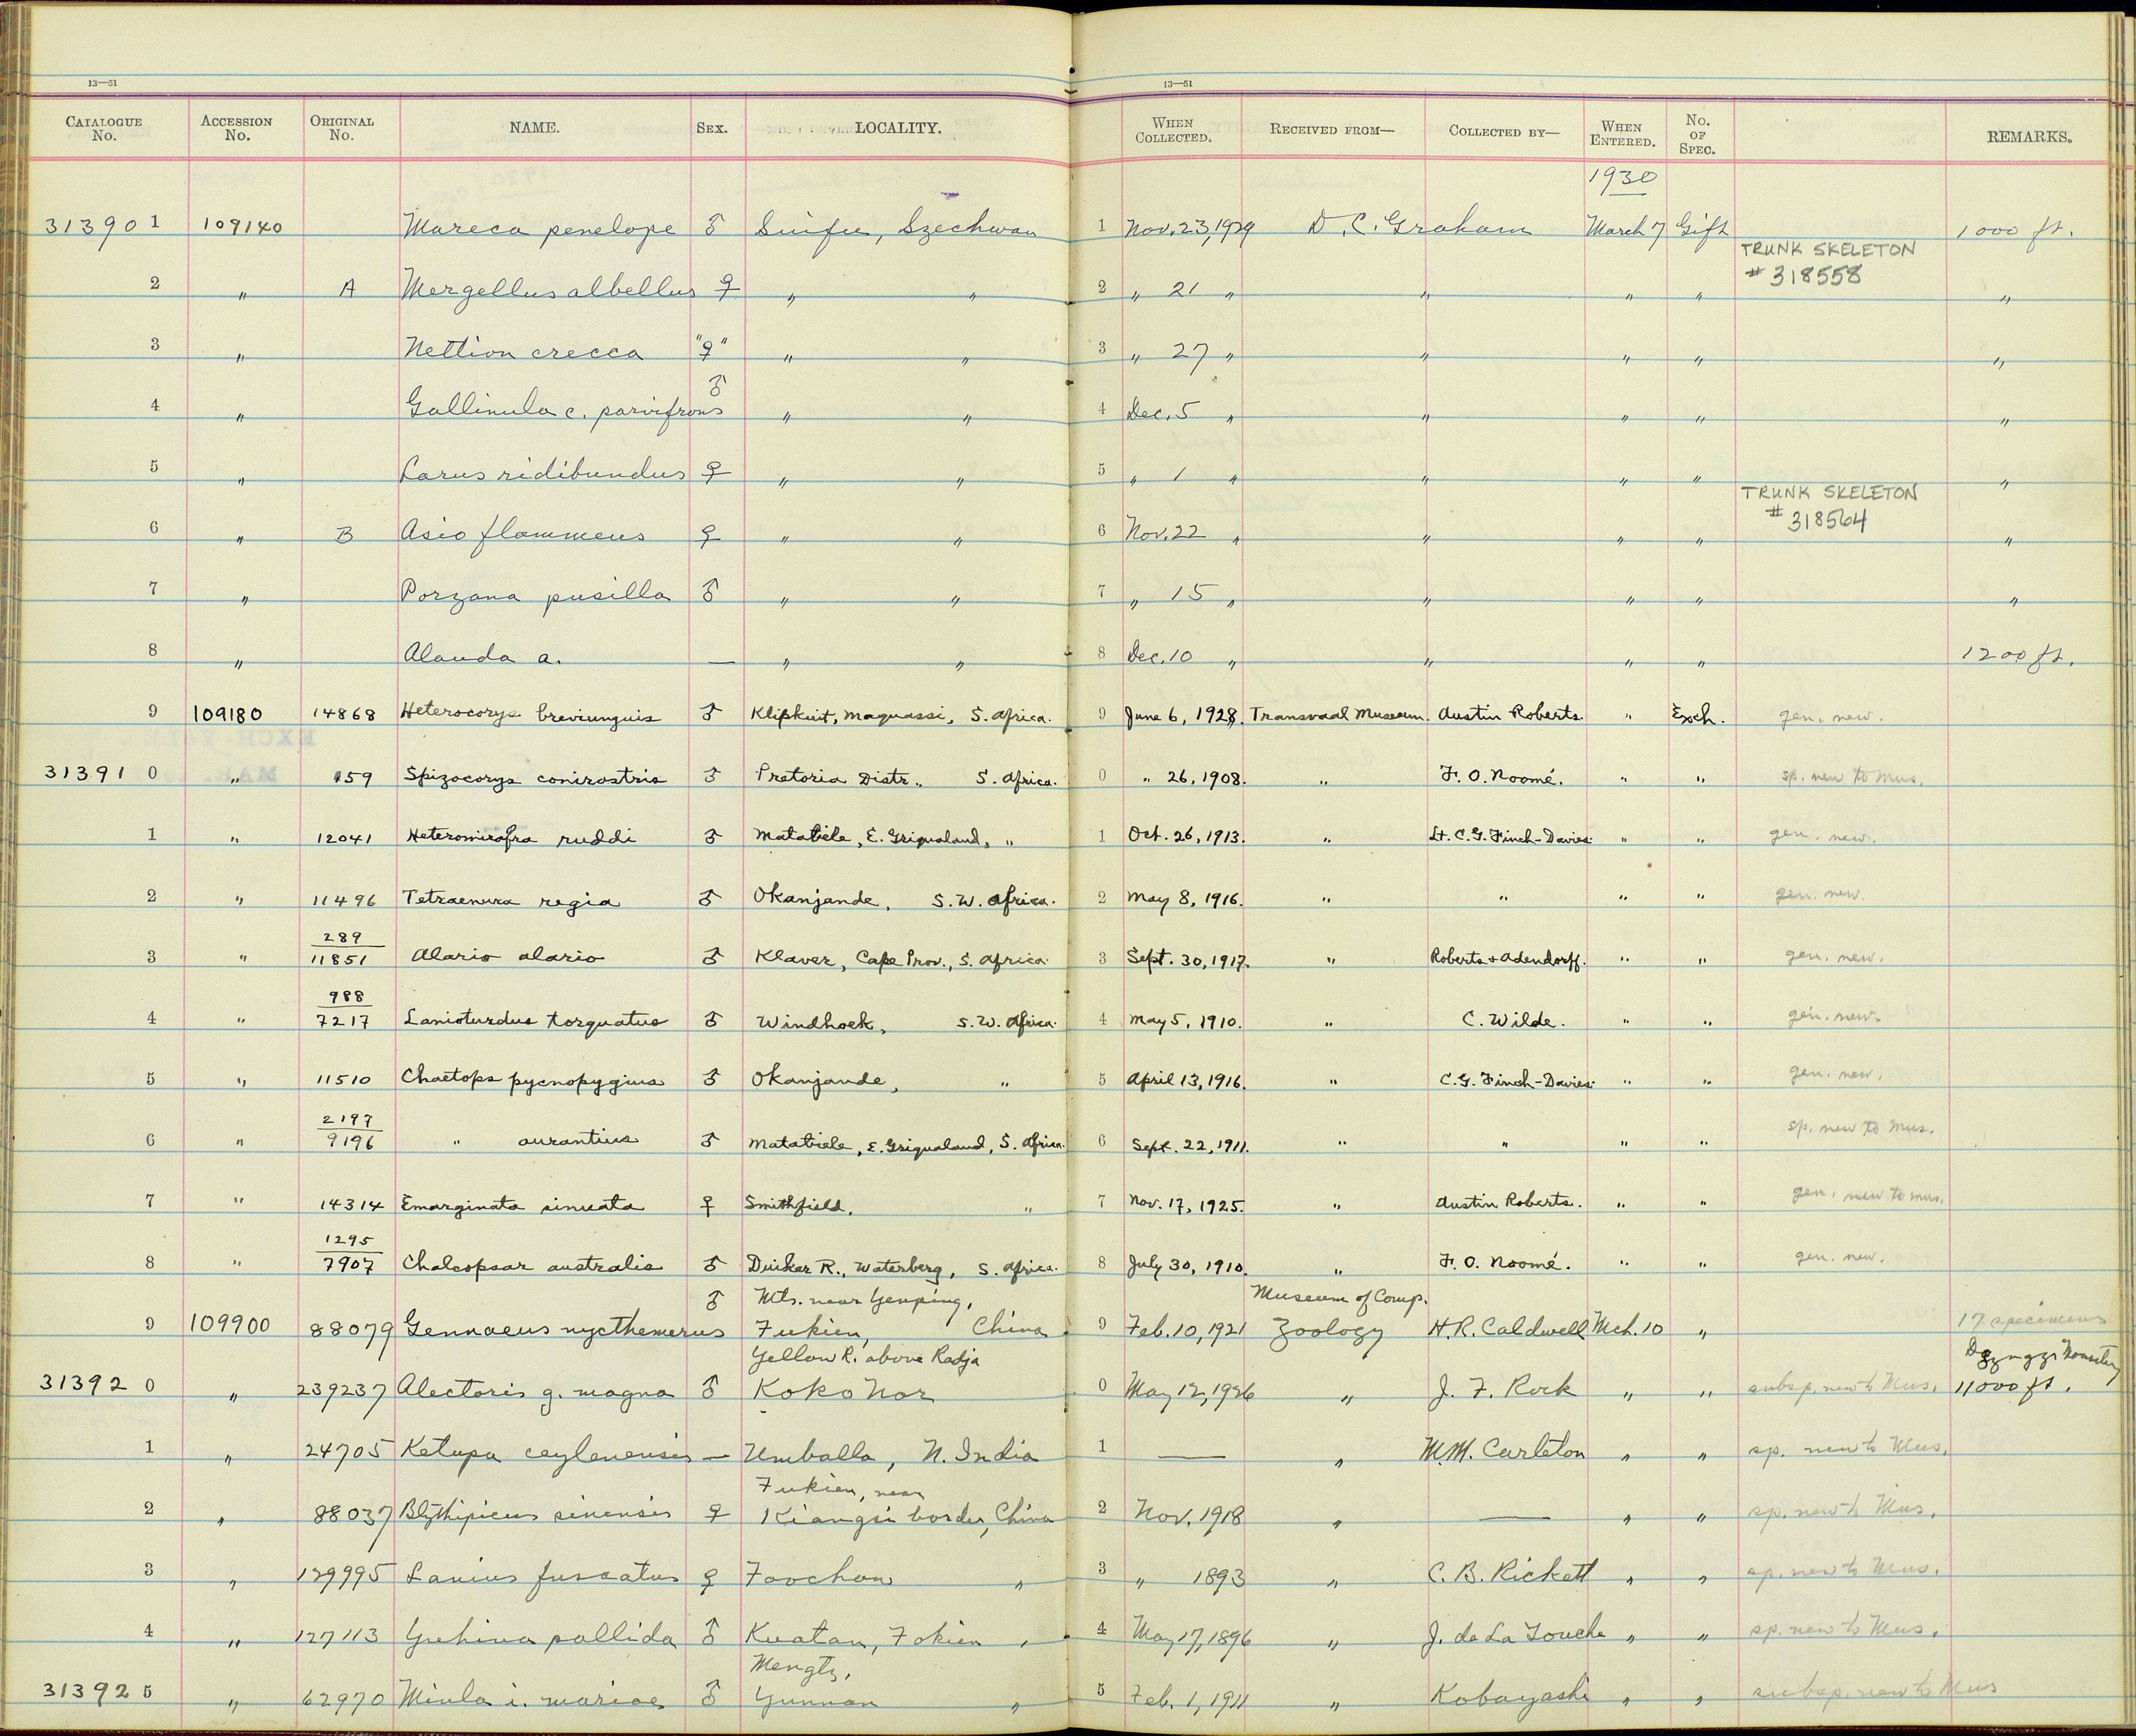 13—51 13—51
CATALOGUE No. ACCESSION No. ORIGINAL No. NAME. SEX. LOCALITY. WHEN COLLECTED. RECEIVED FROM— COLLECTED BY— WHEN ENTERED. No. OF SPEC. REMARKS.
1930
313901 109140 Mareca penelope ♂ Suifu, Szechwan 1 Nov. 23, 1929 D. C. Graham March 7 Gift 1000 ft.
TRUNK SKELETON
# 318558
2 " A Mergellus albellus ♀ " " 2 " 21 " " " " "
3 " Nettion crecca "♀" " " 3 " 27 " " " " "
4 " Gallinula c. parvifrons ♂ " " 4 Dec. 5 " " " " "
5 " Larus ridibundus ♀ " " 5 " 1 " " " " "
TRUNK SKELETON
# 318564
6 " B Asio flammeus ♀ " " 6 Nov. 22 " " " " "
7 " Porzana pusilla ♂ " " 7 " 15 " " " " "
8 " Alauda a. — " " 8 Dec. 10 " " " " 1200 ft.
9 109180 14868 Heterocorys breviunguis ♂ Klipkuit, Maquassi, S. Africa. 9 June 6, 1928. Transvaal Museum. Austin Roberts. " Exch. gen. new.
313910 " 159 Spizocorys conirostris ♂ Pretoria Distr., S. Africa. 0 " 26, 1908. " F. O. Noomé. " " sp. new to Mus.
1 " 12041 Heteromirafra ruddi ♂ Matatiele, E. Griqualand, " 1 Oct. 26, 1913. " Lt. C. G. Finch-Davies. " " gen. new.
2 " 11496 Tetraenura regia ♂ Okanjande, S.W. Africa. 2 May 8, 1916. " " " " gen. new.
289
3 " 11851 Alario alario ♂ Klaver, Cape Prov., S. Africa. 3 Sept. 30, 1917. " Roberts + Adendorff. " " gen. new.
988
4 " 7217 Lanioturdus torquatus ♂ Windhoek, S.W. Africa. 4 May 5, 1910. " C. Wilde. " " gen. new.
5 " 11510 Chaetops pycnopygius ♂ Okanjande, " 5 April 13, 1916. " C. G. Finch-Davies. " " gen. new.
2197
6 " 9196 " aurantius ♂ Matatiele, E. Griqualand, S. Africa. 6 Sept. 22, 1911. " " " " sp. new to Mus.
7 " 14314 Emarginata sinuata ♀ Smithfield, " 7 Nov. 17, 1925. " Austin Roberts. " " gen. new to Mus.
1295
8 " 7907 Chalcopsar australis ♂ Duiker R., Waterberg, S. Africa. 8 July 30, 1910. " F. O. Noomé. " " gen. new.
Mts. near Yenping, Museum of Comp.
9 109900 88079 Gennaeus nycthemerus ♂ Fukien, China 9 Feb. 10, 1921 Zoology H. R. Caldwell Mch. 10 " 17 specimens
Yellow R. above Radja
313920 " 239237 Alectoris g. magna ♂ Koko Nor 0 May 12, 1926 " J. F. Rock " " subsp. new to Mus. 11000 ft.
1 " 24705 Ketupa ceylonensis — Umballa, N. India 1 — " M. M. Carleton " " sp. new to Mus.
Fukien, near
2 " 88037 Blythipicus sinensis ♀ Kiangsi border, China 2 Nov. 1918 " — " " sp. new to Mus.
3 " 129995 Lanius fuscatus ♀ Foochow " 3 " 1893 " C. B. Rickett " " sp. new to Mus.
4 " 127113 Yuhina pallida ♂ Kuatun, Fokien " 4 May 17, 1896 " J. de La Touche " " sp. new to Mus.
Mengtz,
313925 " 62970 Minla i. mariae ♂ Yunnan " 5 Feb. 1, 1911 " Kobayashi " " subsp. new to Mus